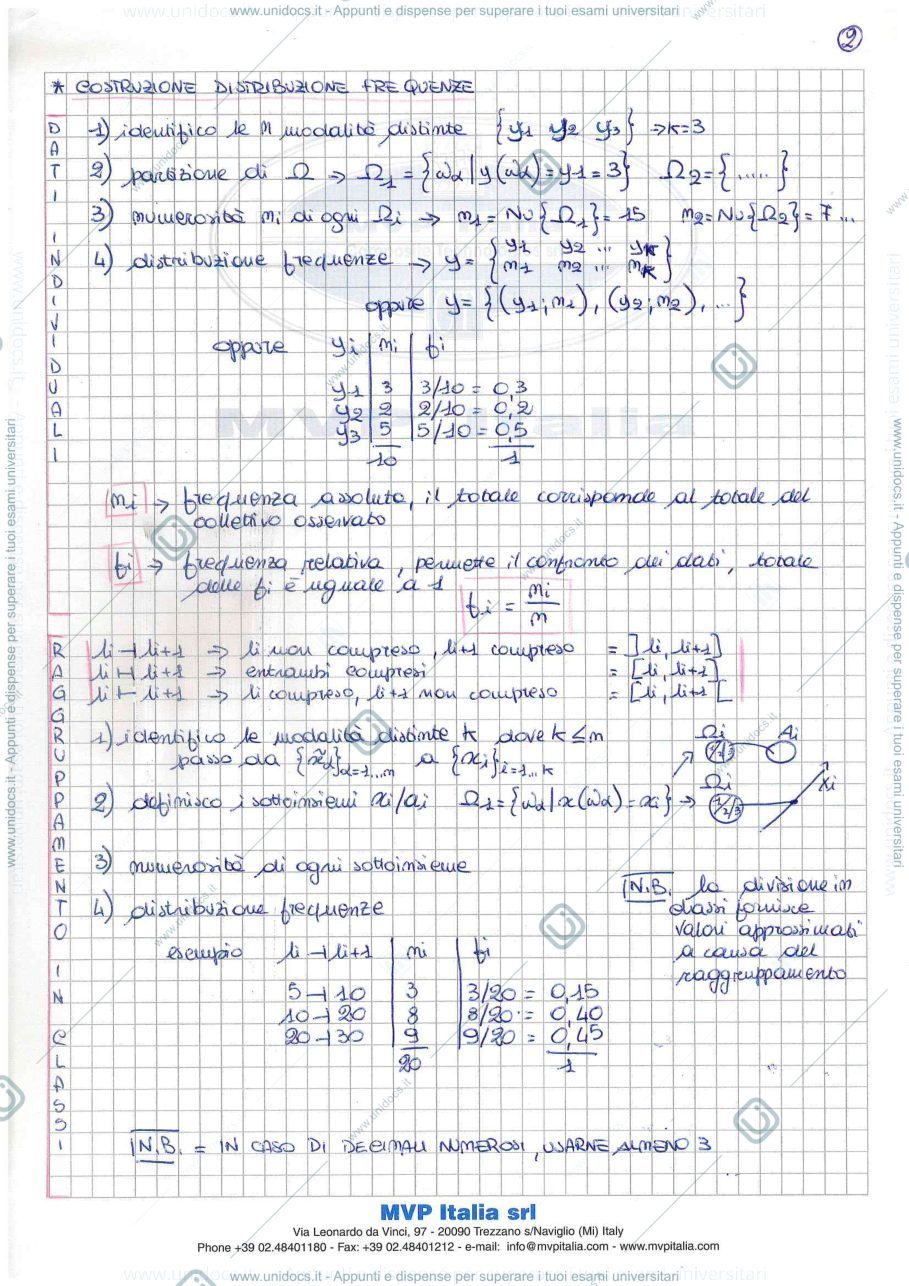 www.unidocs.it - Appunti e dispense per superare i tuoi esami universitari
2
* COSTRUZIONE DISTRIBUZIONE FREQUENZE
DATI INDIVIDUALI
1) identifico le n modalità distinte {y1 y2 y3} ⇒ k=3
2) partizione di Ω → Ω1 = {ωα | y(ωα) = y1 = 3} Ω2 = {.....}
3) numerosità ni di ogni Ωi → n1 = Nu{Ω1} = 15 n2 = Nu{Ω2} = 7 ...
4) distribuzione frequenze → y = { y1 y2 ... yk
n1 n2 ... nk }
oppure y = {(y1; n1), (y2; n2), ...}
oppure yi | ni | fi
y1 | 3 | 3/10 = 0,3
y2 | 2 | 2/10 = 0,2
y3 | 5 | 5/10 = 0,5
10 1
ni → frequenza assoluta, il totale corrisponde al totale del
collettivo osservato
fi → frequenza relativa, permette il confronto dei dati, totale
delle fi è uguale a 1
fi = ni/n
RAGGRUPPAMENTO IN CLASSI
li ⊣ li+1 → li non compreso, li+1 compreso = ]li, li+1]
li H li+1 → entrambi compresi = [li, li+1]
li ⊢ li+1 → li compreso, li+1 non compreso = [li, li+1[
1) identifico le modalità distinte k dove k ≤ n
passo da {x̃α}α=1...n a {xi}i=1...k
Ωi Ai
2) definisco i sottoinsiemi xi/ai Ω1 = {ωα | x(ωα) = xi} →
Ωi xi
3) numerosità di ogni sottoinsieme
4) distribuzione frequenze
N.B. la divisione in
classi fornisce
valori approssimati
a causa del
raggruppamento
esempio li ⊣ li+1 | ni | fi
5 ⊣ 10 | 3 | 3/20 = 0,15
10 ⊣ 20 | 8 | 8/20 = 0,40
20 ⊣ 30 | 9 | 9/20 = 0,45
20 1
N.B. = IN CASO DI DECIMALI NUMEROSI, USARNE ALMENO 3
MVP Italia srl
Via Leonardo da Vinci, 97 - 20090 Trezzano s/Naviglio (Mi) Italy
Phone +39 02.48401180 - Fax: +39 02.48401212 - e-mail: info@mvpitalia.com - www.mvpitalia.com
www.unidocs.it - Appunti e dispense per superare i tuoi esami universitari